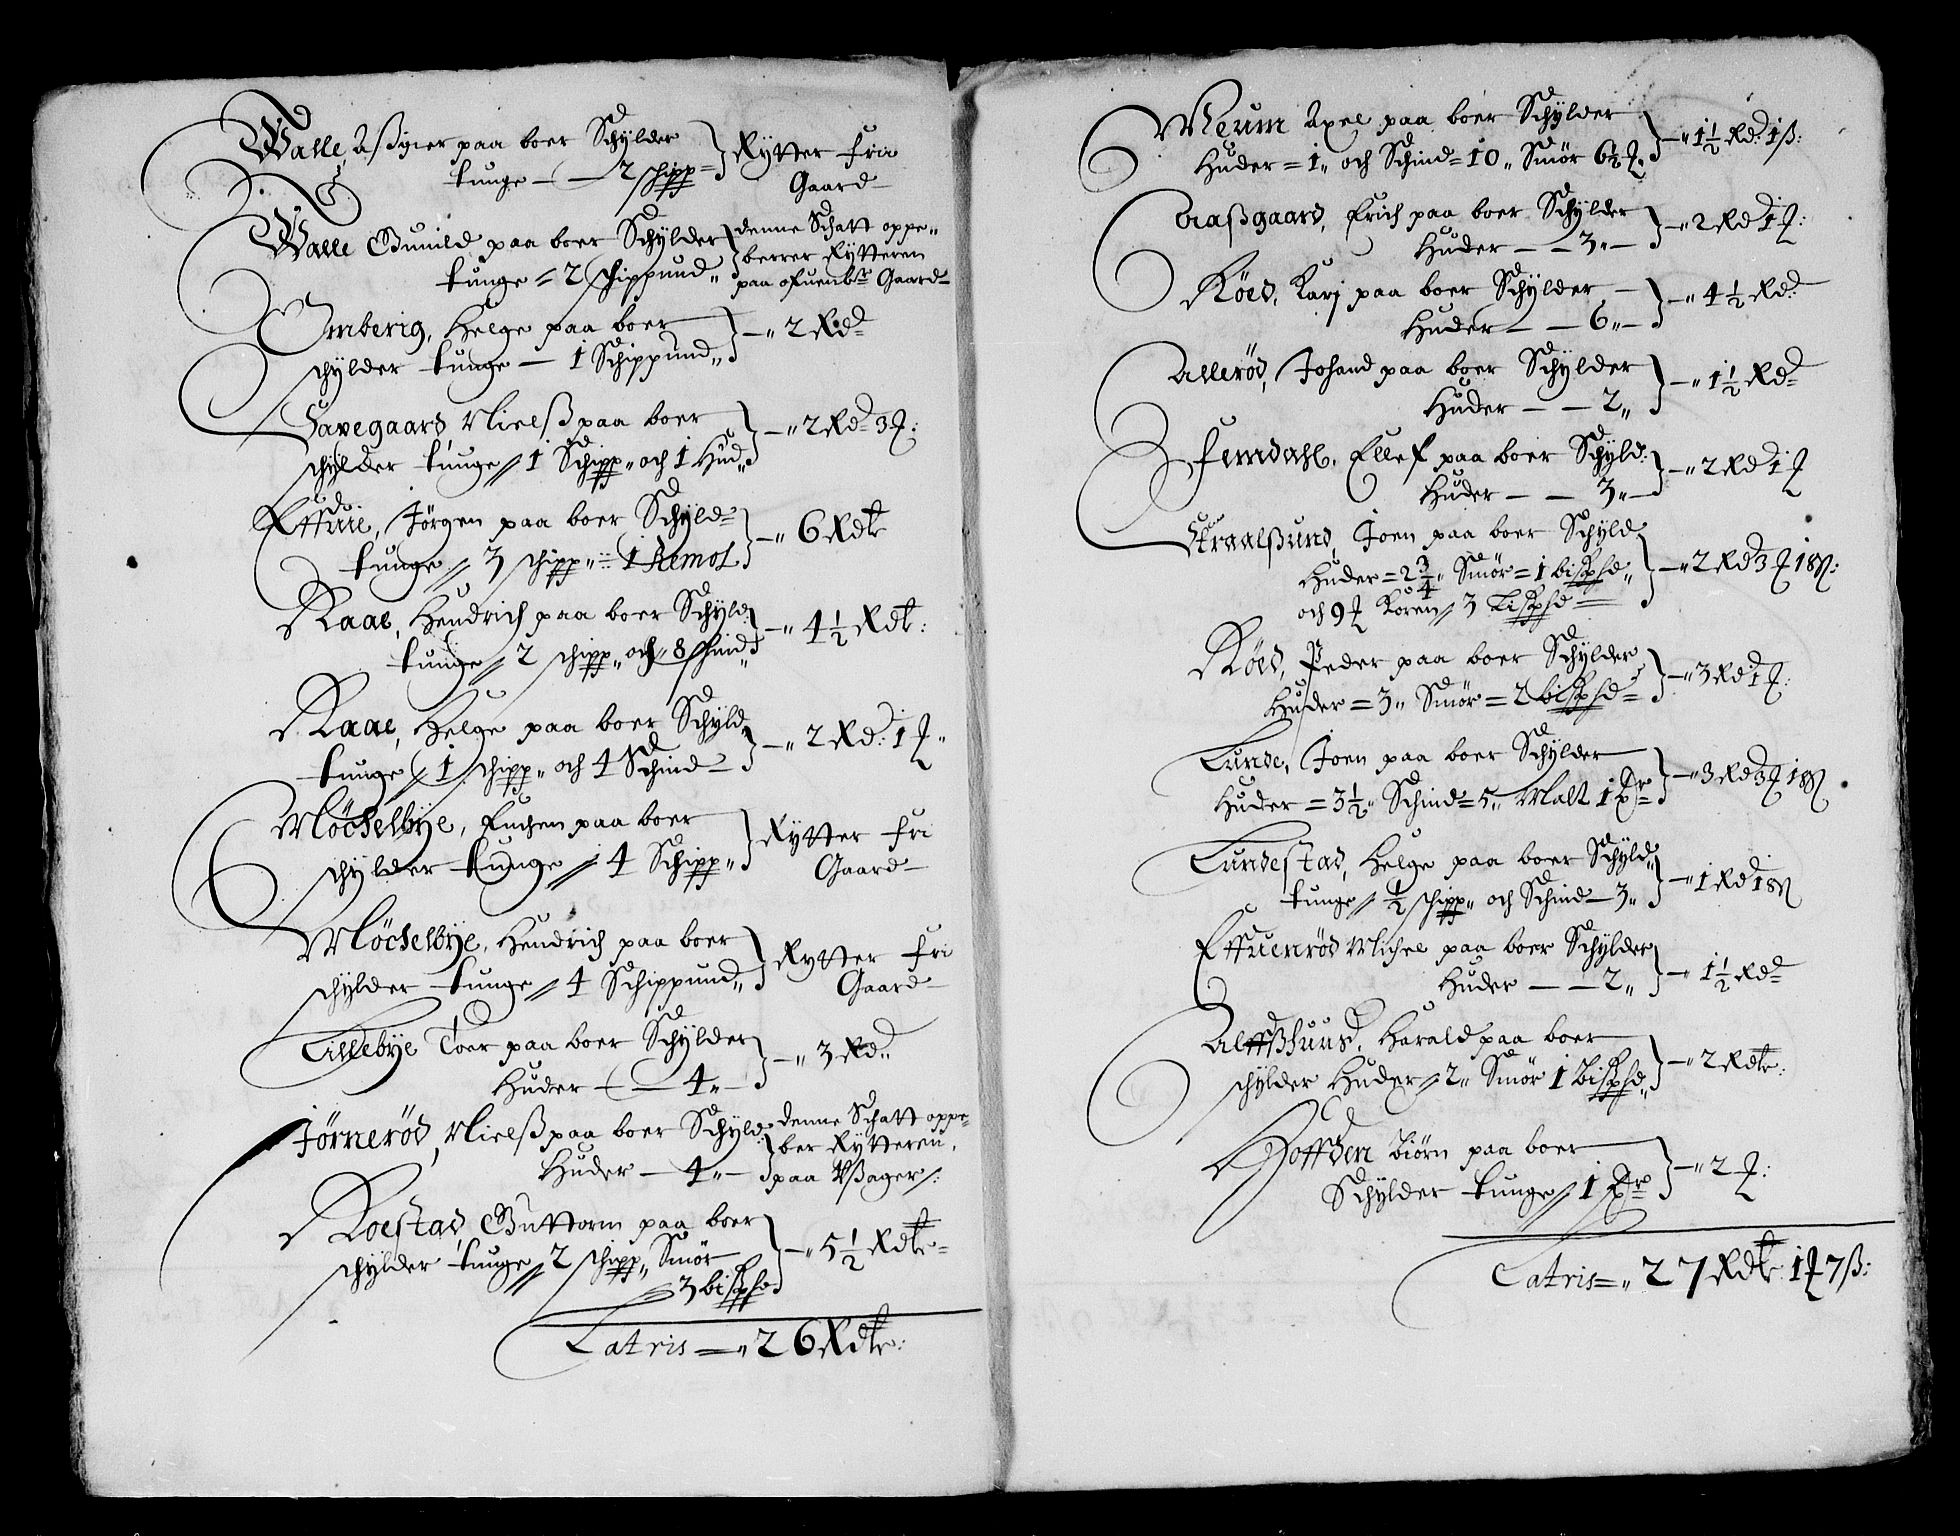 Walle, Aßgier paa boer Schylder
tunge — 2 schipp= Rytter fria
Gaard
Walle Gunild paa boer Schylder denne Schatt oppe„
tunge = 2 schippund„ berrer Rytteren
paa ofuenbte Gaard
Omberig, Helge paa boer
schylder tunge — 1 Schippund„ — „ 2 Rd=
Havegaard Nielß paa boer
schylder tunge 1 Schipp„ och 1 Hud„ — „ 2 Rd= 3 ꝶ:
Effuie, Jørgen paa boer Schyld=
tunge 3 schipp„ = 1 Remol — „ 6 Rdlr
Kaae, Hendrich paa boer Schyld:
tunge 2 schipp„ och 8 schind„ — „ 4½ Rdlr:
Kaae, Helge paa boer Schyld„
tunge 1 schipp„ och 4 Schind — „ 2 Rd: 1 ꝶ„
Møchelbye, Euchen paa boer
schylder tunge 4 Schipp„ Rytter fri
Gaard
Møchelbye, Hendrich paa boer
schylder tunge 4 Schippund„ Rytter fri
Gaard
Lillebye Toer paa boer Schylder
Huder — 4„ — „ 3 Rd„
Jørnerød, Nielß paa boer Schyld: denne Schatt oppe=
Huder — 4„ — ber Rytteren,
paa Vßager:
Roestad, Guttorm paa boer
schylder tunge 2 schipp„ Smör
3 bißphd — „ 5½ Rdlr=
Latris = „ 26 Rdlr:
Meum Axel paa boer Schylder
Huder = 1„ och Schind = 10„ Smör 6½ ꝶ. — „ 1½ Rd: 1 ß:
Aaßgaard, Erich paa boer Schylder
Huder — 3„ — „ 2 Rd 1 ꝶ:
Röed, Karj paa boer Schylder
Huder — — 6„ — „ 4½ Rd:
Allerød, Johand paa boer Schylder
Huder — — 2„ — „ 1½ Rd=
Femdahl, Ellef paa boer Schyld:
Huder — — 3„ — „ 2 Rd 1 ꝶ
Straalßund, Joen paa boer Schyld
Huder = 2¾„ Smör = 1 bißphd„
och 9 ꝶ Koren 3 Lißphd — „ 2 Rd 3 ꝶ 18 ß:
Röed, Peder paa boer Schylder
Huder = 3„ Smör = 2 bißphd= — „ 3 Rd 1 ꝶ:
Lunde, Joen paa boer Schylder
Huder = 3½„ Schind = 5„ Malt 1 — „ 3 Rd 3 ꝶ 18 ß
Lundestad, Helge paa boer Schyld„
tunge ½ schipp„ och Schind — 3„ — „ 1 Rd 18 ß
Effuenrød Michel paa boer Schylder
Huder — — 2„ — „ 1½ Rd=
Alffßhuus, Harald paa boer
schylder Huder 2„ Smör 1 Bißphd„ — „ 2 Rdlr:
Hoffden Biørn paa boer
Schylder tunge 1 — „ 2 ꝶ:
Latris = „ 27 Rdlr 1 ꝶ 7 ß: